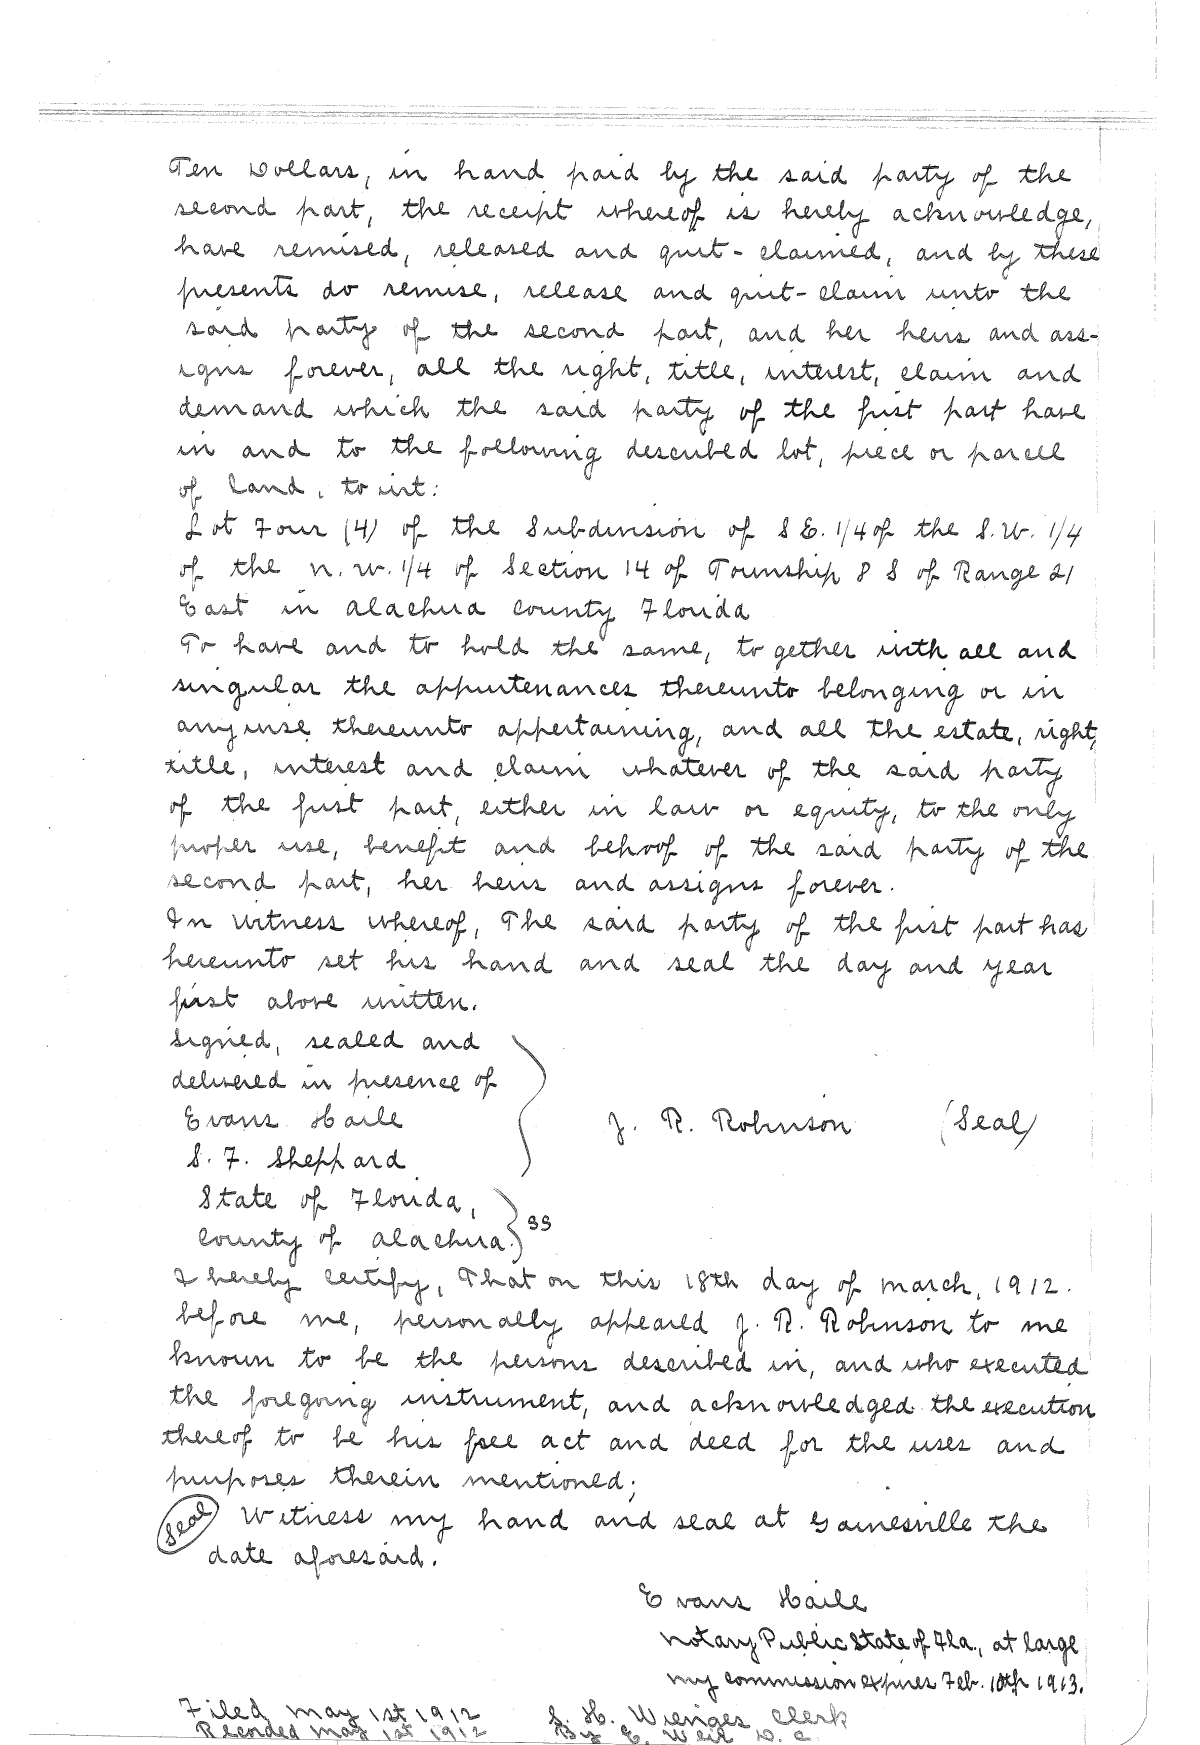 Ten Dollars, in hand paid by the said party of the
second part, the receipt whereof is hereby acknowledge,
have remised, released and quit-claimed, and by these
presents do remise, release and quit-claim unto the
said party of the second part, and her heirs and ass-
igns forever, all the right, title, interest, claim and
demand which the said party of the first part have
in and to the following described lot, piece or parcell
of land, to wit:
Lot Four (4) of the Subdivision of S E. 1/4 of the S.W. 1/4
of the N.W. 1/4 of Section 14 of Township 8 S of Range 21
East in Alachua County Florida
To have and to hold the same, to gether with all and
singular the appurtenances thereunto belonging or in
anywise thereunto appertaining, and all the estate, right,
title, interest and claim whatever of the said party
of the first part, either in law or equity, to the only
proper use, benefit and behoof of the said party of the
second part, her heirs and assigns forever.
In Witness whereof, The said party of the first part has
hereunto set his hand and seal the day and year
first above written.
Signed, sealed and
delivered in presence of
Evans Haile
J. R. Robinson (Seal)
S. F. Sheppard
State of Florida,
County of Alachua. } SS
I hereby certify, That on this 18th day of March, 1912.
before me, personally appeared J. R. Robinson to me
known to be the persons described in, and who executed
the foregoing instrument, and acknowledged the execution
thereof to be his free act and deed for the uses and
purposes therein mentioned;
(Seal) Witness my hand and seal at Gainesville the
date aforesaid.
Evans Haile
Notary Public State of Fla., at large
My commission expires Feb. 10th 1913.
Filed May 1st 1912 S. H. Wienges Clerk
Recorded May 1st 1912 By E. Weil D. C.